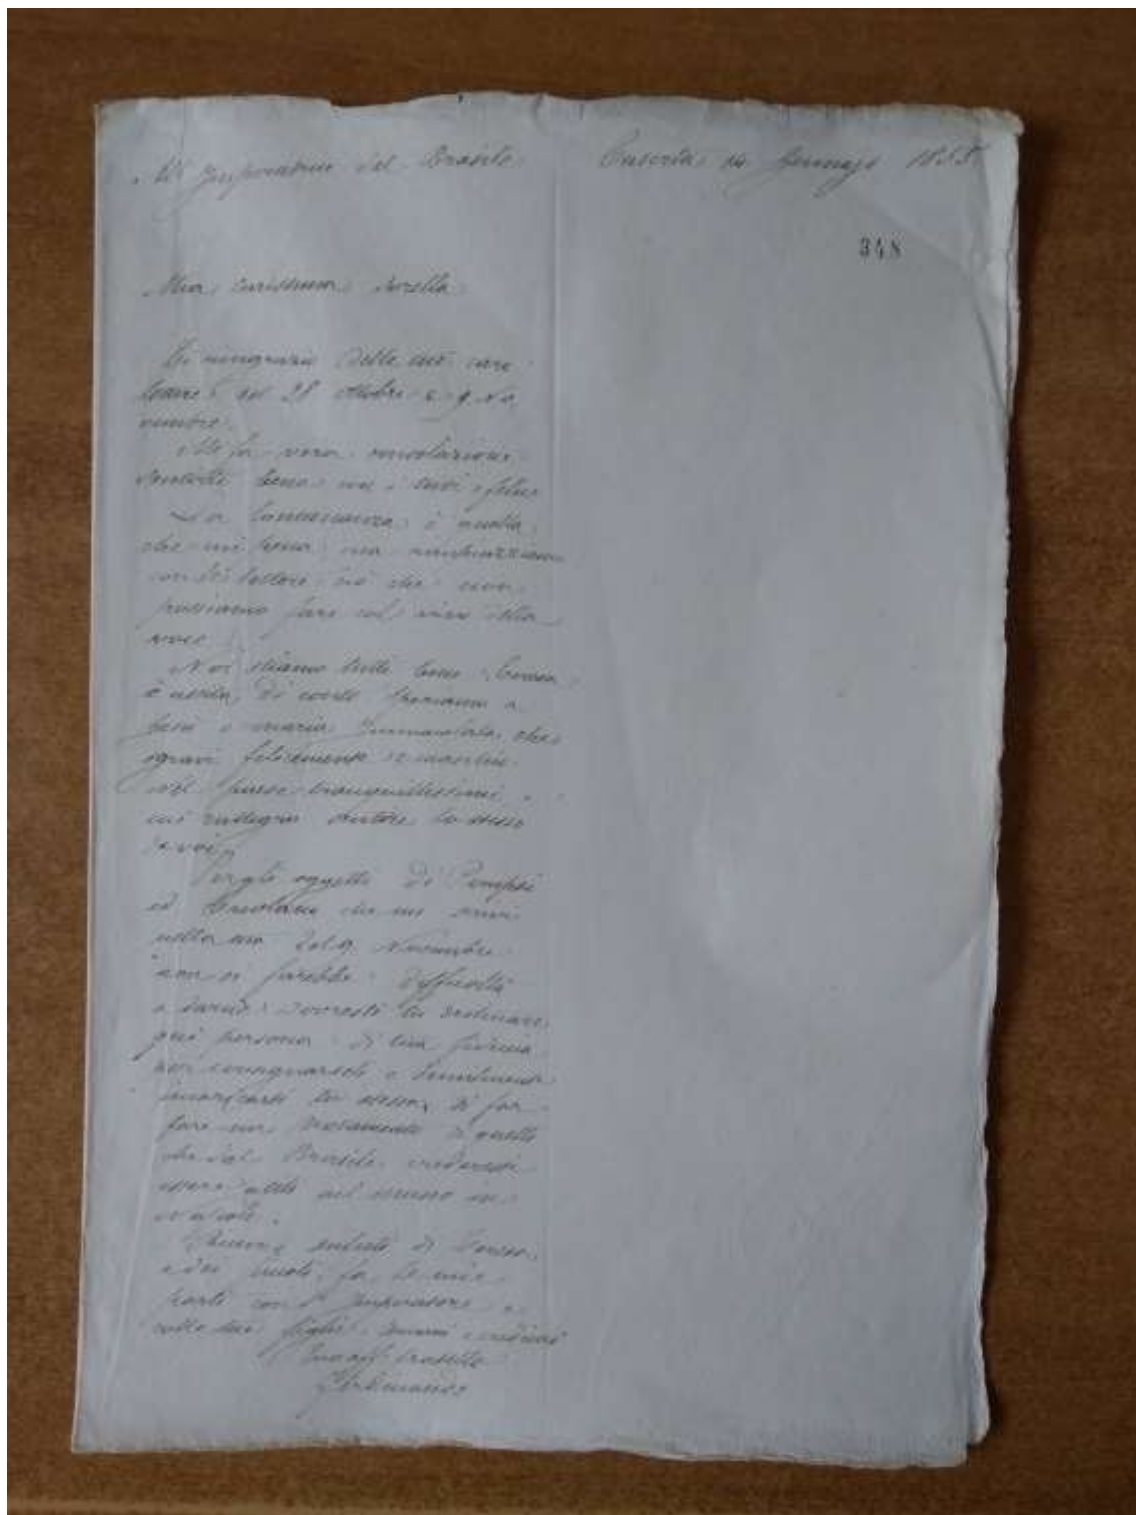 All' Imperatrice del Brasile Caserta 14 Gennajo 1855
348
Mia carissima sorella
Ti ringrazio delle tue care
lettere del 28 Ottobre e 9 No
vembre.
Mi fa vera consolazione
sentirti bene con i tuoi e felice
La lontananza è quella
che mi pena ma
con le lettere ciò che non
possiamo fare col viva della
voce
Noi stiamo tutti bene Teresa
è uscita di conto speriamo a
Gesù e Maria Immacolata che
sgravi felicemente
Nel paese tranquillissimi e
mi rallegra sentire lo stesso
di voi
Per gli oggetti di Pompei
ed Ercolano che mi scrivi
nella tua del 9 Novembre
non si farebbe difficoltà
a darli dovresti tu ordinare
qui persona di tua fiducia
per consegnarseli e
incaricarti tu stessa di far
fare un di quelli
che dal Brasile crederesti
essere utili al museo in
Napoli.
Ricevi i saluti di Teresa
e dei fa le mie
parti con l' Imperatore e
colle tue figlie amami e credimi
Tuo aff. fratello
Ferdinando